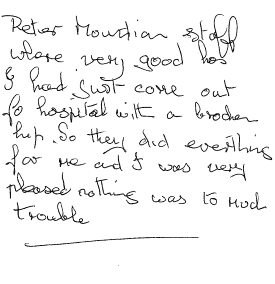 Peter Moustian staff
where very good has
I had just come out
fo hospital with a brocken
hip. So they did everithing
for me and I was very
pleased nothing was to much
trouble